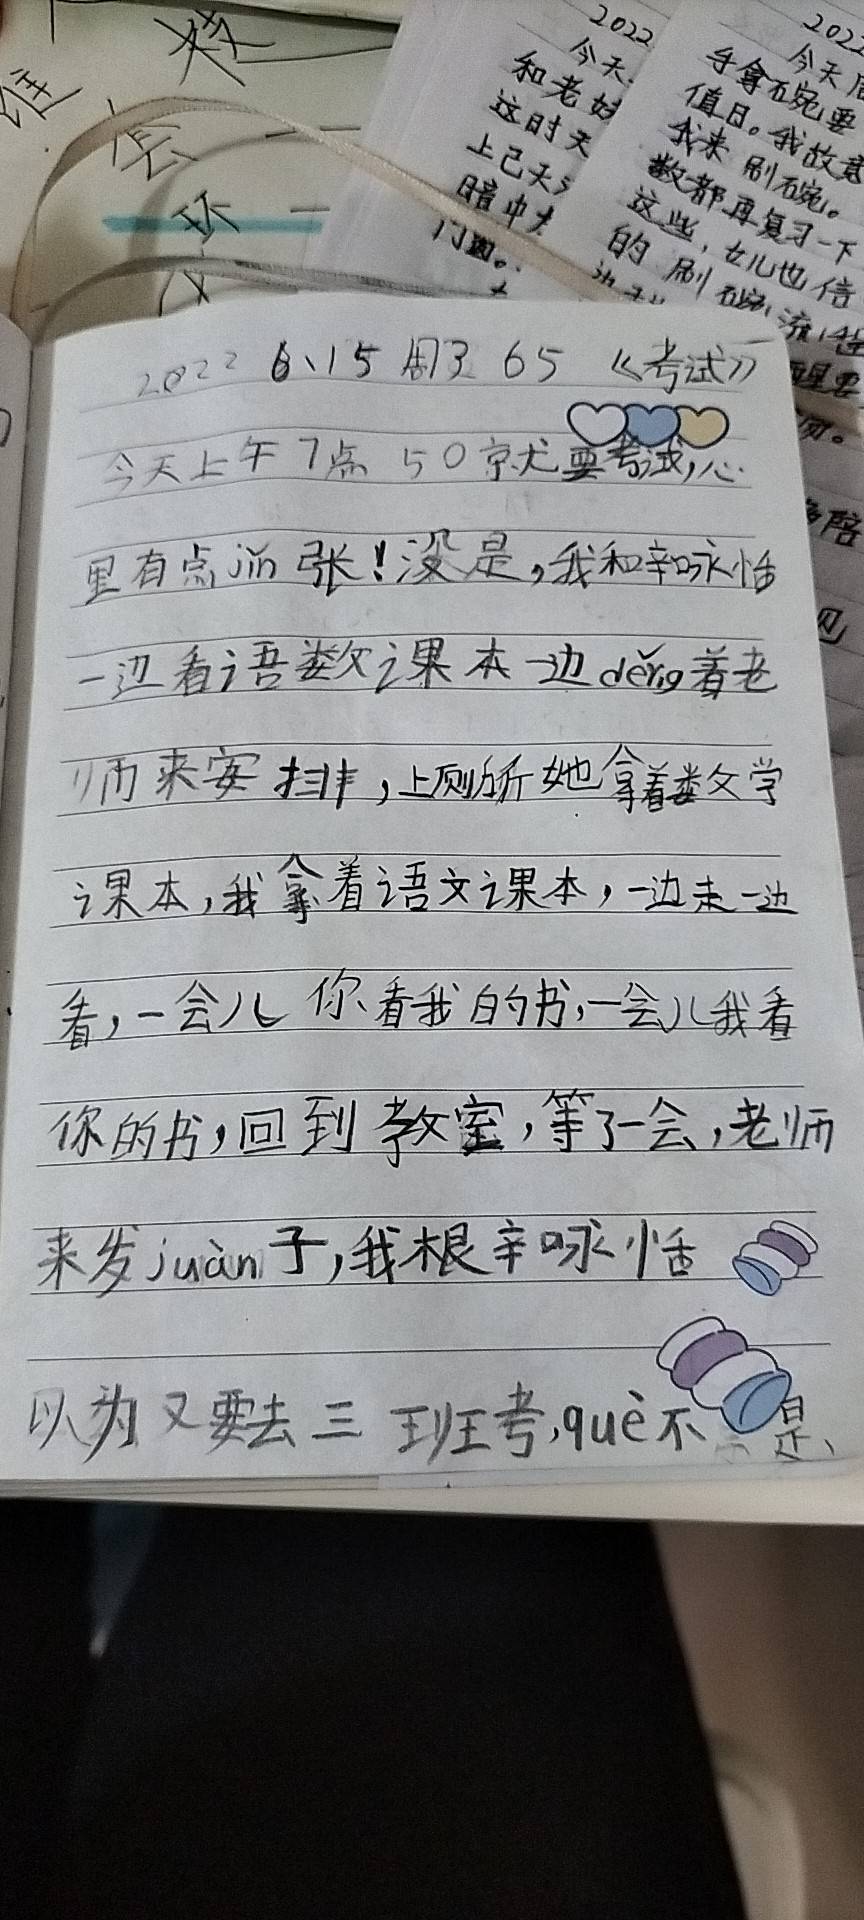 谁
会
环
2022
今天
和老妹
这时天
上已天
暗中
门
2022
今天周
手拿碗要
值日。我故意
我来刷碗。
数都再复习一下
这些,女儿也倍
的刷碗流程
里要
陪
见
2022 6、15 周三 65 《考试》
今天上午7点50就要考试,心
里有点jǐn张!没是,我和辛咏恬
一边看语数课本一边děng着老
师来安排,上厕所她拿着数学
课本,我拿着语文课本,一边走一边
看,一会儿你看我的书,一会儿我看
你的书,回到教室,等了一会,老师
来发juàn子,我根辛咏恬
以为又要去三班考,què不是、